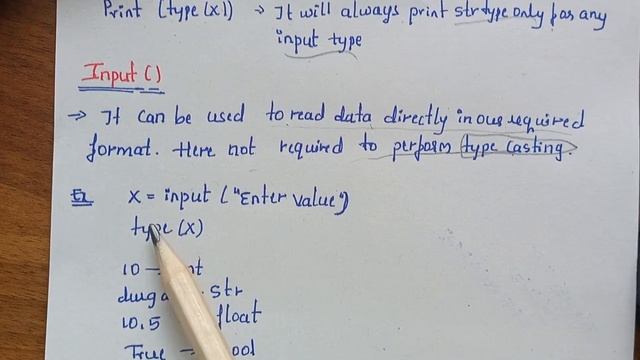 Print (type (x)) → It will always print str type only for any
input type
Input ()
→ It can be used to read data directly in our required
format. Here not required to perform type casting.
Ex x = input ("Enter value")
type (x)
10 —
str
10.5 float
True →